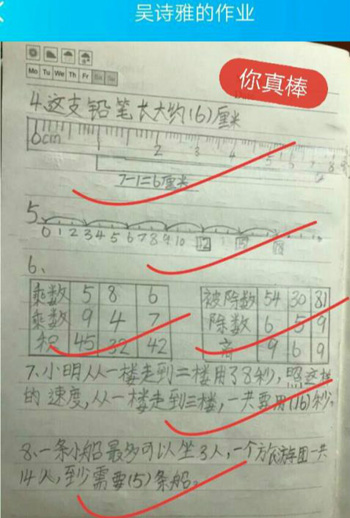 吴诗雅的作业
你真棒
Mo Tu We Th Fr Sa Su
4.这支铅笔长大约(6)厘米
0cm 1 2 3 4 5 6 7 8
7-1=6厘米
5.
0 1 2 3 4 5 6 7 8 9 10 12
6、
乘数 5 8 6 被除数 54 30 81
乘数 9 4 7 除数 6 5 9
积 45 32 42 商 9 6 9
7、小明从一楼走到二楼用了8秒,照这样
的速度,从一楼走到三楼,一共要用(16)秒。
8、一条小船最多可以坐3人,一个旅游团一共
14人,至少需要(5)条船。